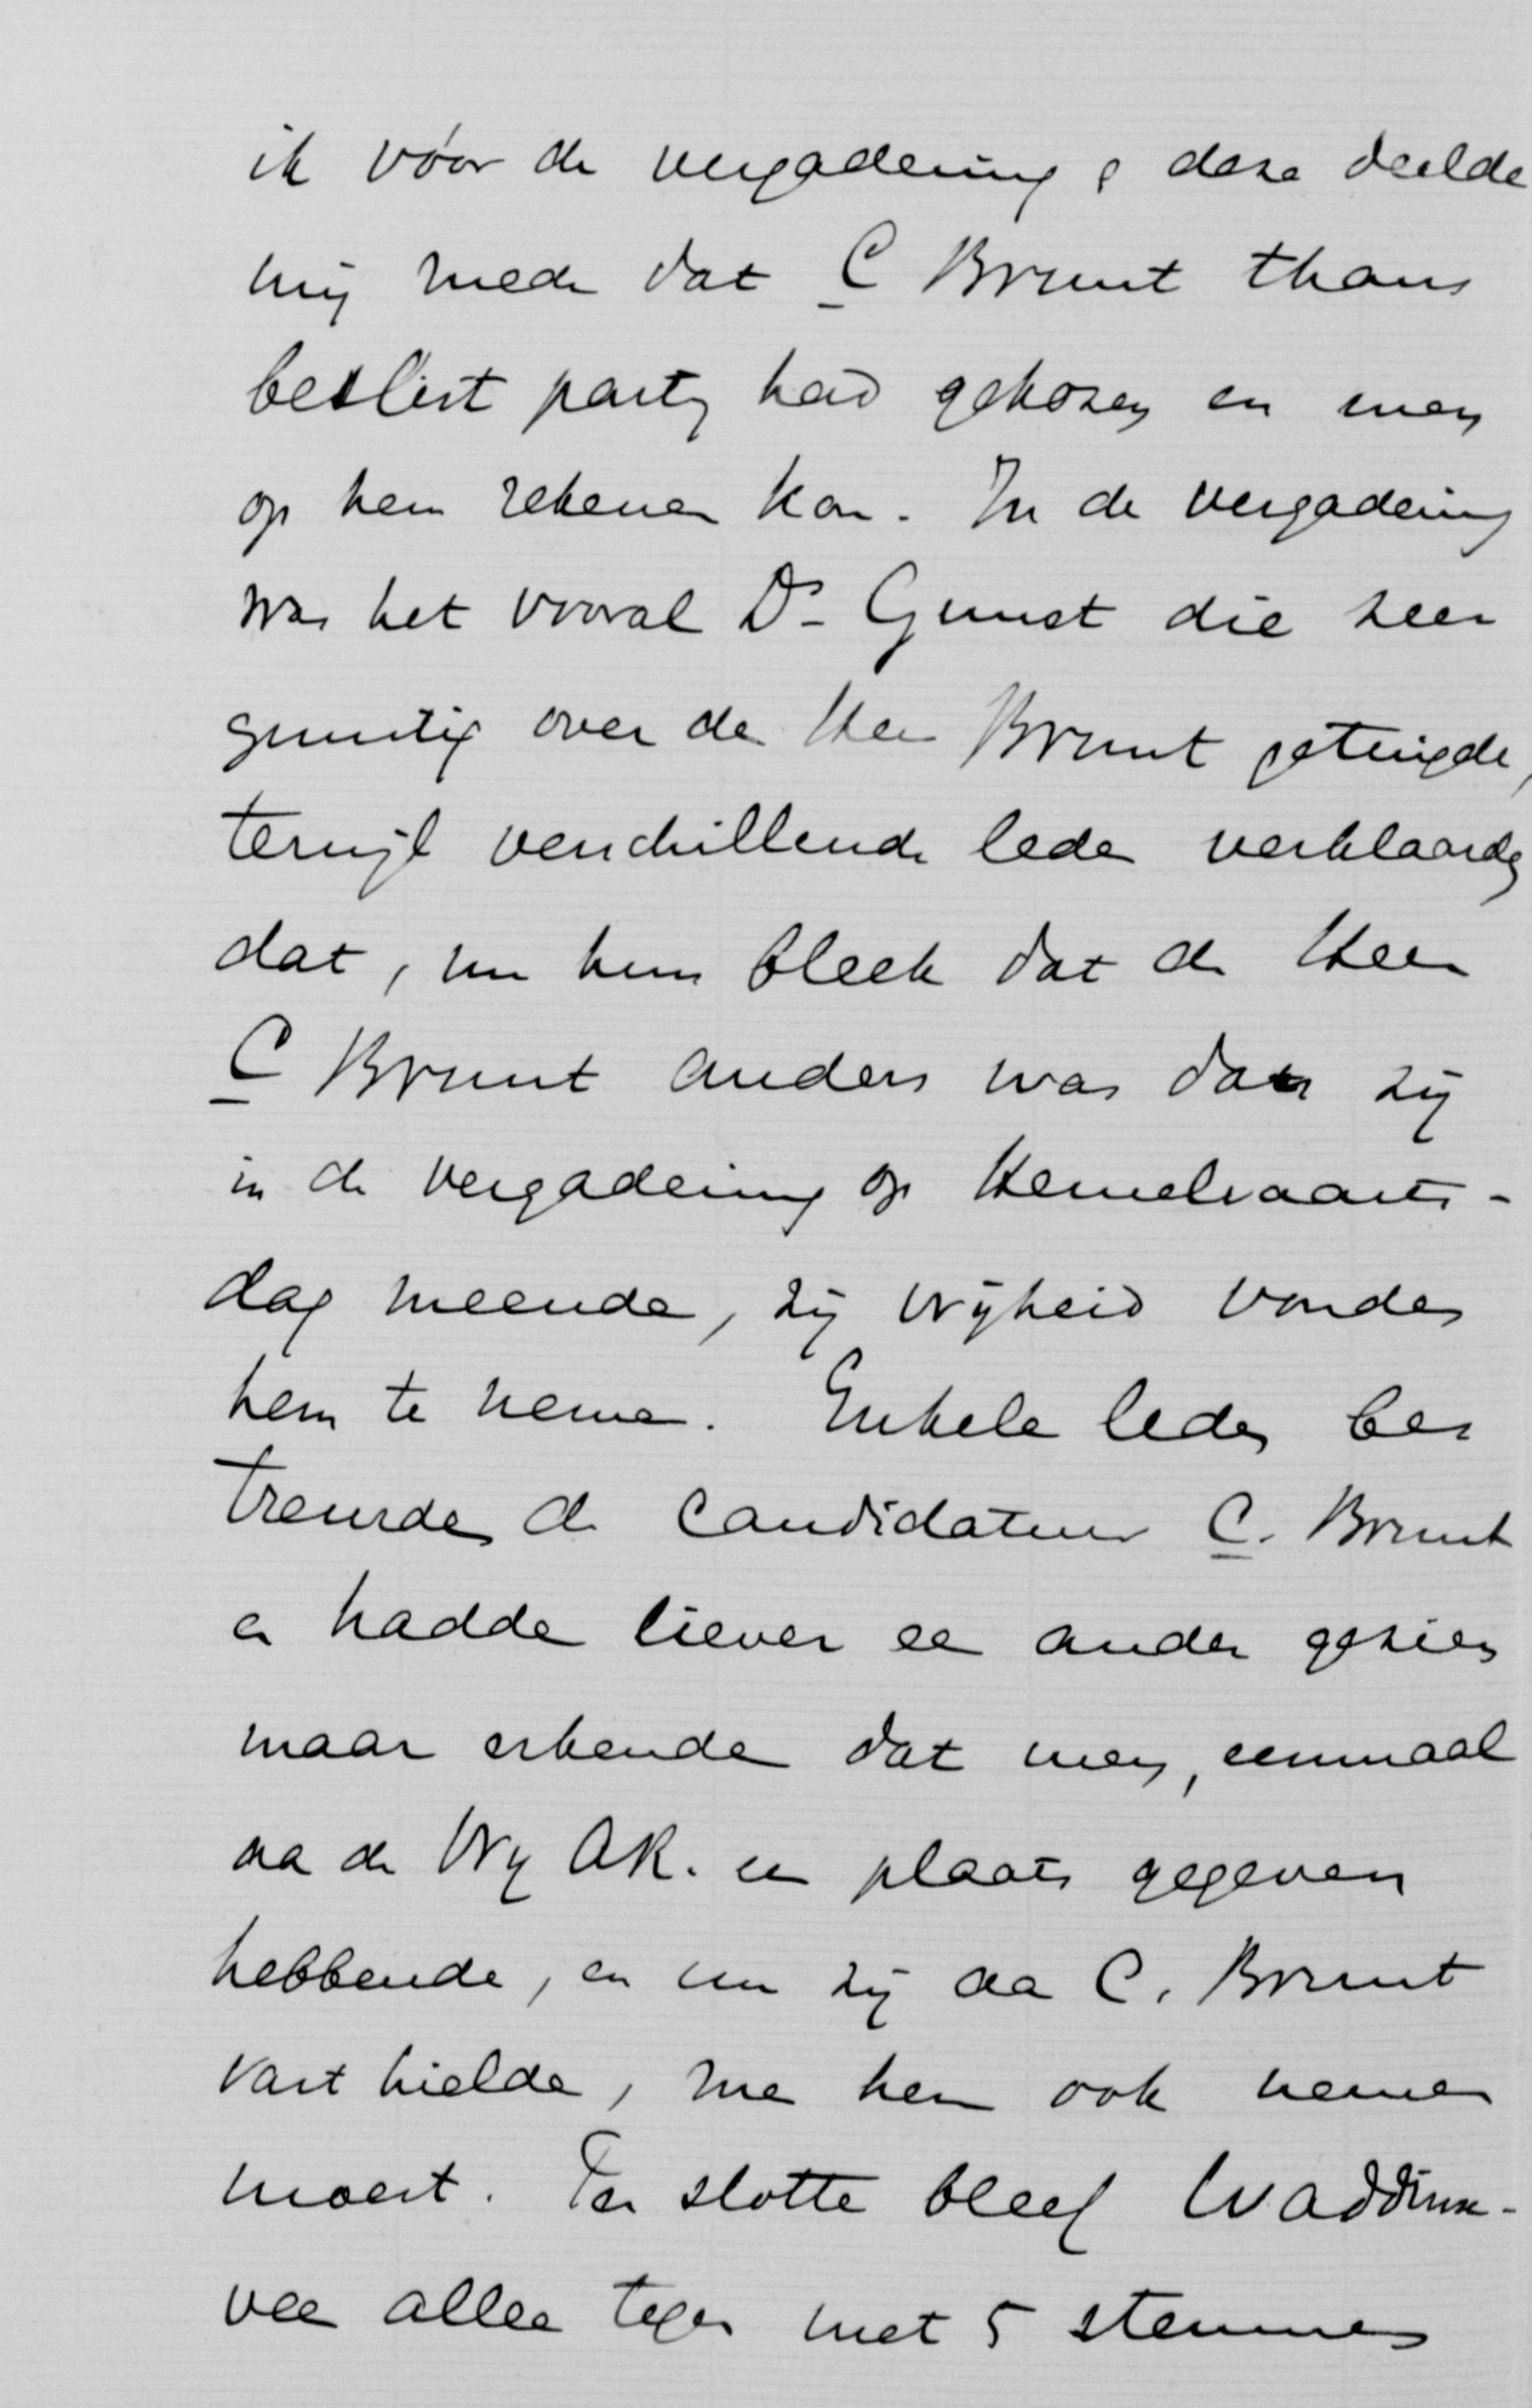 ik vóór de vergadering & deze deelde
mij mede dat C Brunt thans
beslist party had gekozen en men
op hem rekenen kon. In de vergadering
was het vooral Ds Gunst die zeer
gunstig over de Heer Brunt getuigde,
terwijl verschillende leden verklaarden
dat, nu hun bleek dat de Heer
C Brunt anders was dan zij
in de vergadering op Hemelvaarts-
dag meenden, zij vrijheid vonden
hem te nemen. Enkele leden be
treurden de candidatuur C. Brunt
en hadden liever een ander gezien
maar erkenden dat men, eenmaal
aan de Vrij AR. een plaats gegeven
hebbende, en nu zij aan C. Brunt
vast hielden, men hem ook nemen
moest. Ten slotte bleef Waddinx-
veen alleen tegen met 5 stemmen